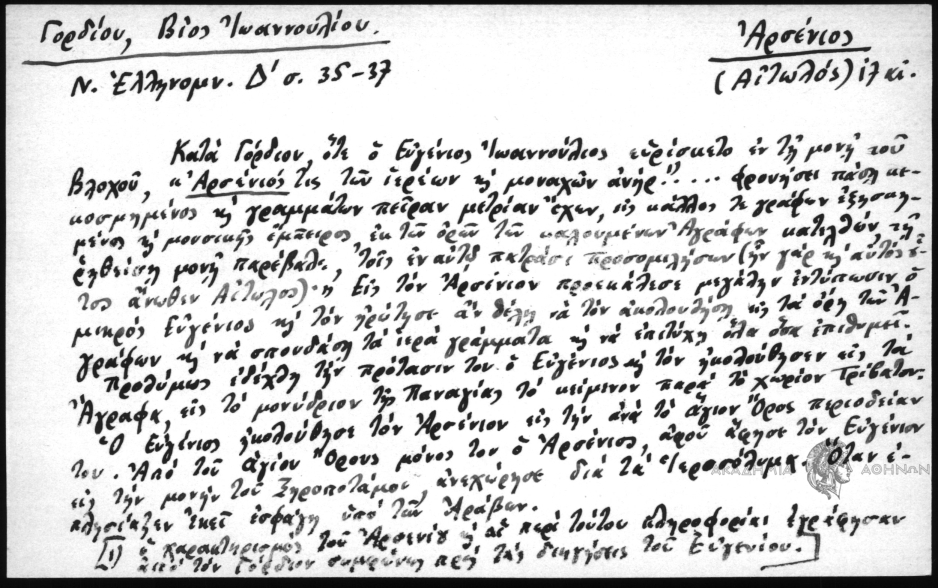 Γορδίου, Βίος Ἰωαννουλίου.
Ἀρσένιος
Ν. Ἑλληνομν. Δ' σ. 35-37
(Αἰτωλός) 17 αἰ.
Κατὰ Γόρδιον, ὅτε ὁ Εὐγένιος Ἰωαννούλιος εὑρίσκετο ἐν τῇ μονῇ τοῦ
Βλοχοῦ, "Ἀρσένιός τις τῶν ἱερέων καὶ μοναχῶν ἀνήρ.... φρονήσει πάσῃ κε-
κοσμημένος καὶ γραμμάτων πεῖραν μετρίαν ἔχων, εἰς κάλλος τε γράφων ἐξησκη-
μένος καὶ μουσικῆς ἔμπειρος ἐκ τῶν ὀρῶν τῶν καλουμένων Ἀγράφων κατελθὼν τῇ
ῥηθείσῃ μονῇ παρέβαλε, τοῖς ἐν αὐτῷ πατράσι προσομιλήσων (ἦν γὰρ καὶ αὐτὸς ἐ-
τος ἄνωθεν Αἰτωλός)." Εἰς τὸν Ἀρσένιον προεκάλεσε μεγάλην ἐντύπωσιν ὁ
μικρὸς Εὐγένιος καὶ τὸν ἠρώτησε ἂν θέλῃ νὰ τὸν ἀκολουθήσῃ εἰς τὰ ὄρη τῶν Ἀ-
γράφων καὶ νὰ σπουδάσῃ τὰ ἱερὰ γράμματα καὶ νὰ ἐπιτύχῃ ὅλα ὅσα ἐπιθυμεῖ.
Προθύμως ἐδέχθη τὴν πρότασίν του ὁ Εὐγένιος καὶ τὸν ἠκολούθησεν εἰς τὰ
Ἄγραφα, εἰς τὸ μονύδριον τῆς Παναγίας τὸ κείμενον παρὰ τὸ χωρίον Τριβάτον.
Ὁ Εὐγένιος ἠκολούθησε τὸν Ἀρσένιον εἰς τὴν ἀνὰ τὸ ἅγιον Ὄρος περιοδείαν
του. Ἀπὸ τοῦ ἁγίου Ὄρους μόνος του ὁ Ἀρσένιος, ἀφοῦ ἄφησε τὸν Εὐγένιον
εἰς τὴν μονὴν τοῦ Ξηροποτάμου, ἀνεχώρησε διὰ τὰ Ἱεροσόλυμα. Ὅταν ἐ-
πλησίαζεν ἐκεῖ ἐσφάγη ὑπὸ τῶν Ἀράβων.
ΑΚΑΔΗΜΙΑ ΑΘΗΝΩΝ
[1) ὁ χαρακτηρισμὸς τοῦ Ἀρσενίου καὶ αἱ περὶ τούτου πληροφορίαι ἐγράφησαν
ἀπὸ τὸν Γόρδιον συμφώνως πρὸς τὰς διηγήσεις τοῦ Εὐγενίου.]